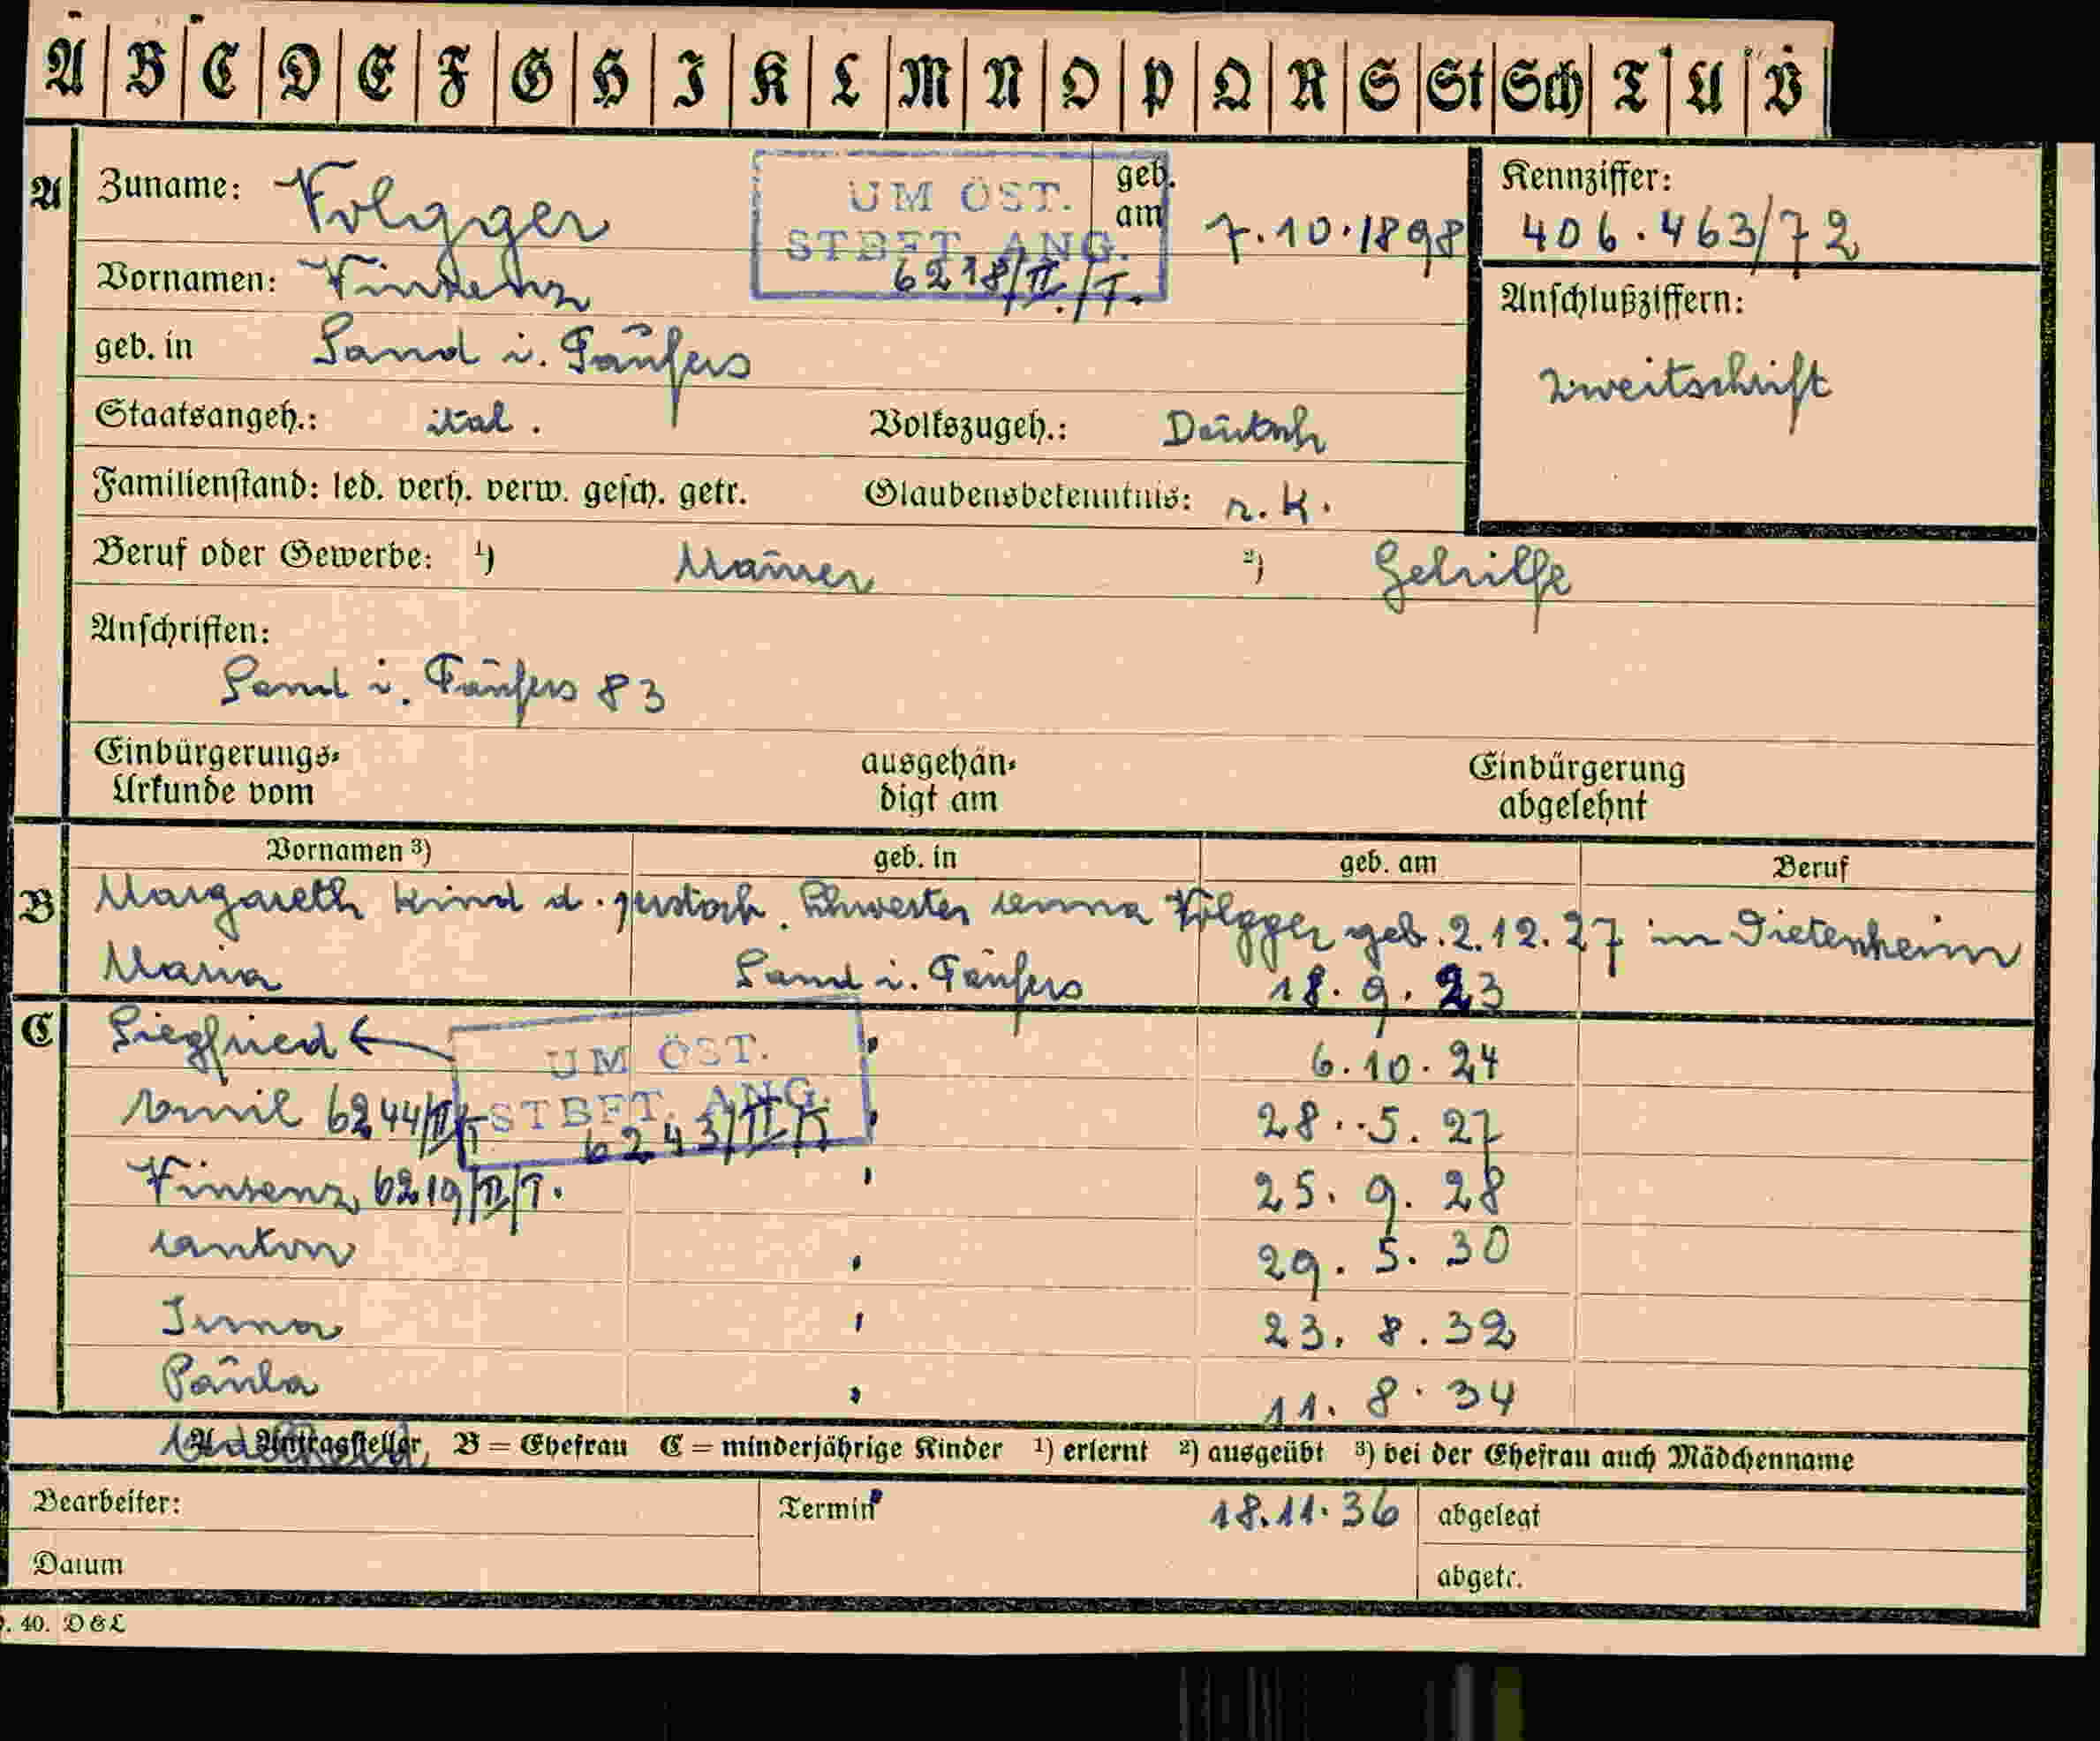 A B C D E F G H I K L M N O P Q R S St Sch T U V
A Zuname: Volgger geb. am 7.10.1898
UM ÖST.
STBFT. ANG.
6218/II./T.
Kennziffer:
406.463/72
Vornamen: Vinzenz
Anschlußziffern:
Zweitschrift
geb. in Sand i. Taufers
Staatsangeh.: ital. Volkszugeh.: Deutsch
Familienstand: led. verh. verw. gesch. getr. Glaubensbekenntnis: r. k.
Beruf oder Gewerbe: ¹) Maurer ²) Gehilfe
Anschriften:
Sand i. Taufers 83
Einbürgerungs-Urkunde vom ausgehändigt am Einbürgerung abgelehnt
Vornamen ³) geb. in geb. am Beruf
B Margareth Kind d. Schwester Anna Volgger geb. 2.12.27 in Dietenheim
Maria Sand i. Taufers 18. 9. 23
C Siegfried ← " 6.10.24
UM ÖST.
STBFT. ANG.
6243/II/T
Emil 6244/II/T " 28..5.27
Vinzenz 6219/II/T. " 25. 9. 28
Anton " 29. 5. 30
Irma " 23. 8. 32
Paula " 11. 8. 34
A = Antragsteller, B = Ehefrau C = minderjährige Kinder ¹) erlernt ²) ausgeübt ³) bei der Ehefrau auch Mädchenname
Bearbeiter: Termin 18.11.36 abgelegt
Datum abgetr.
. 40. D & L